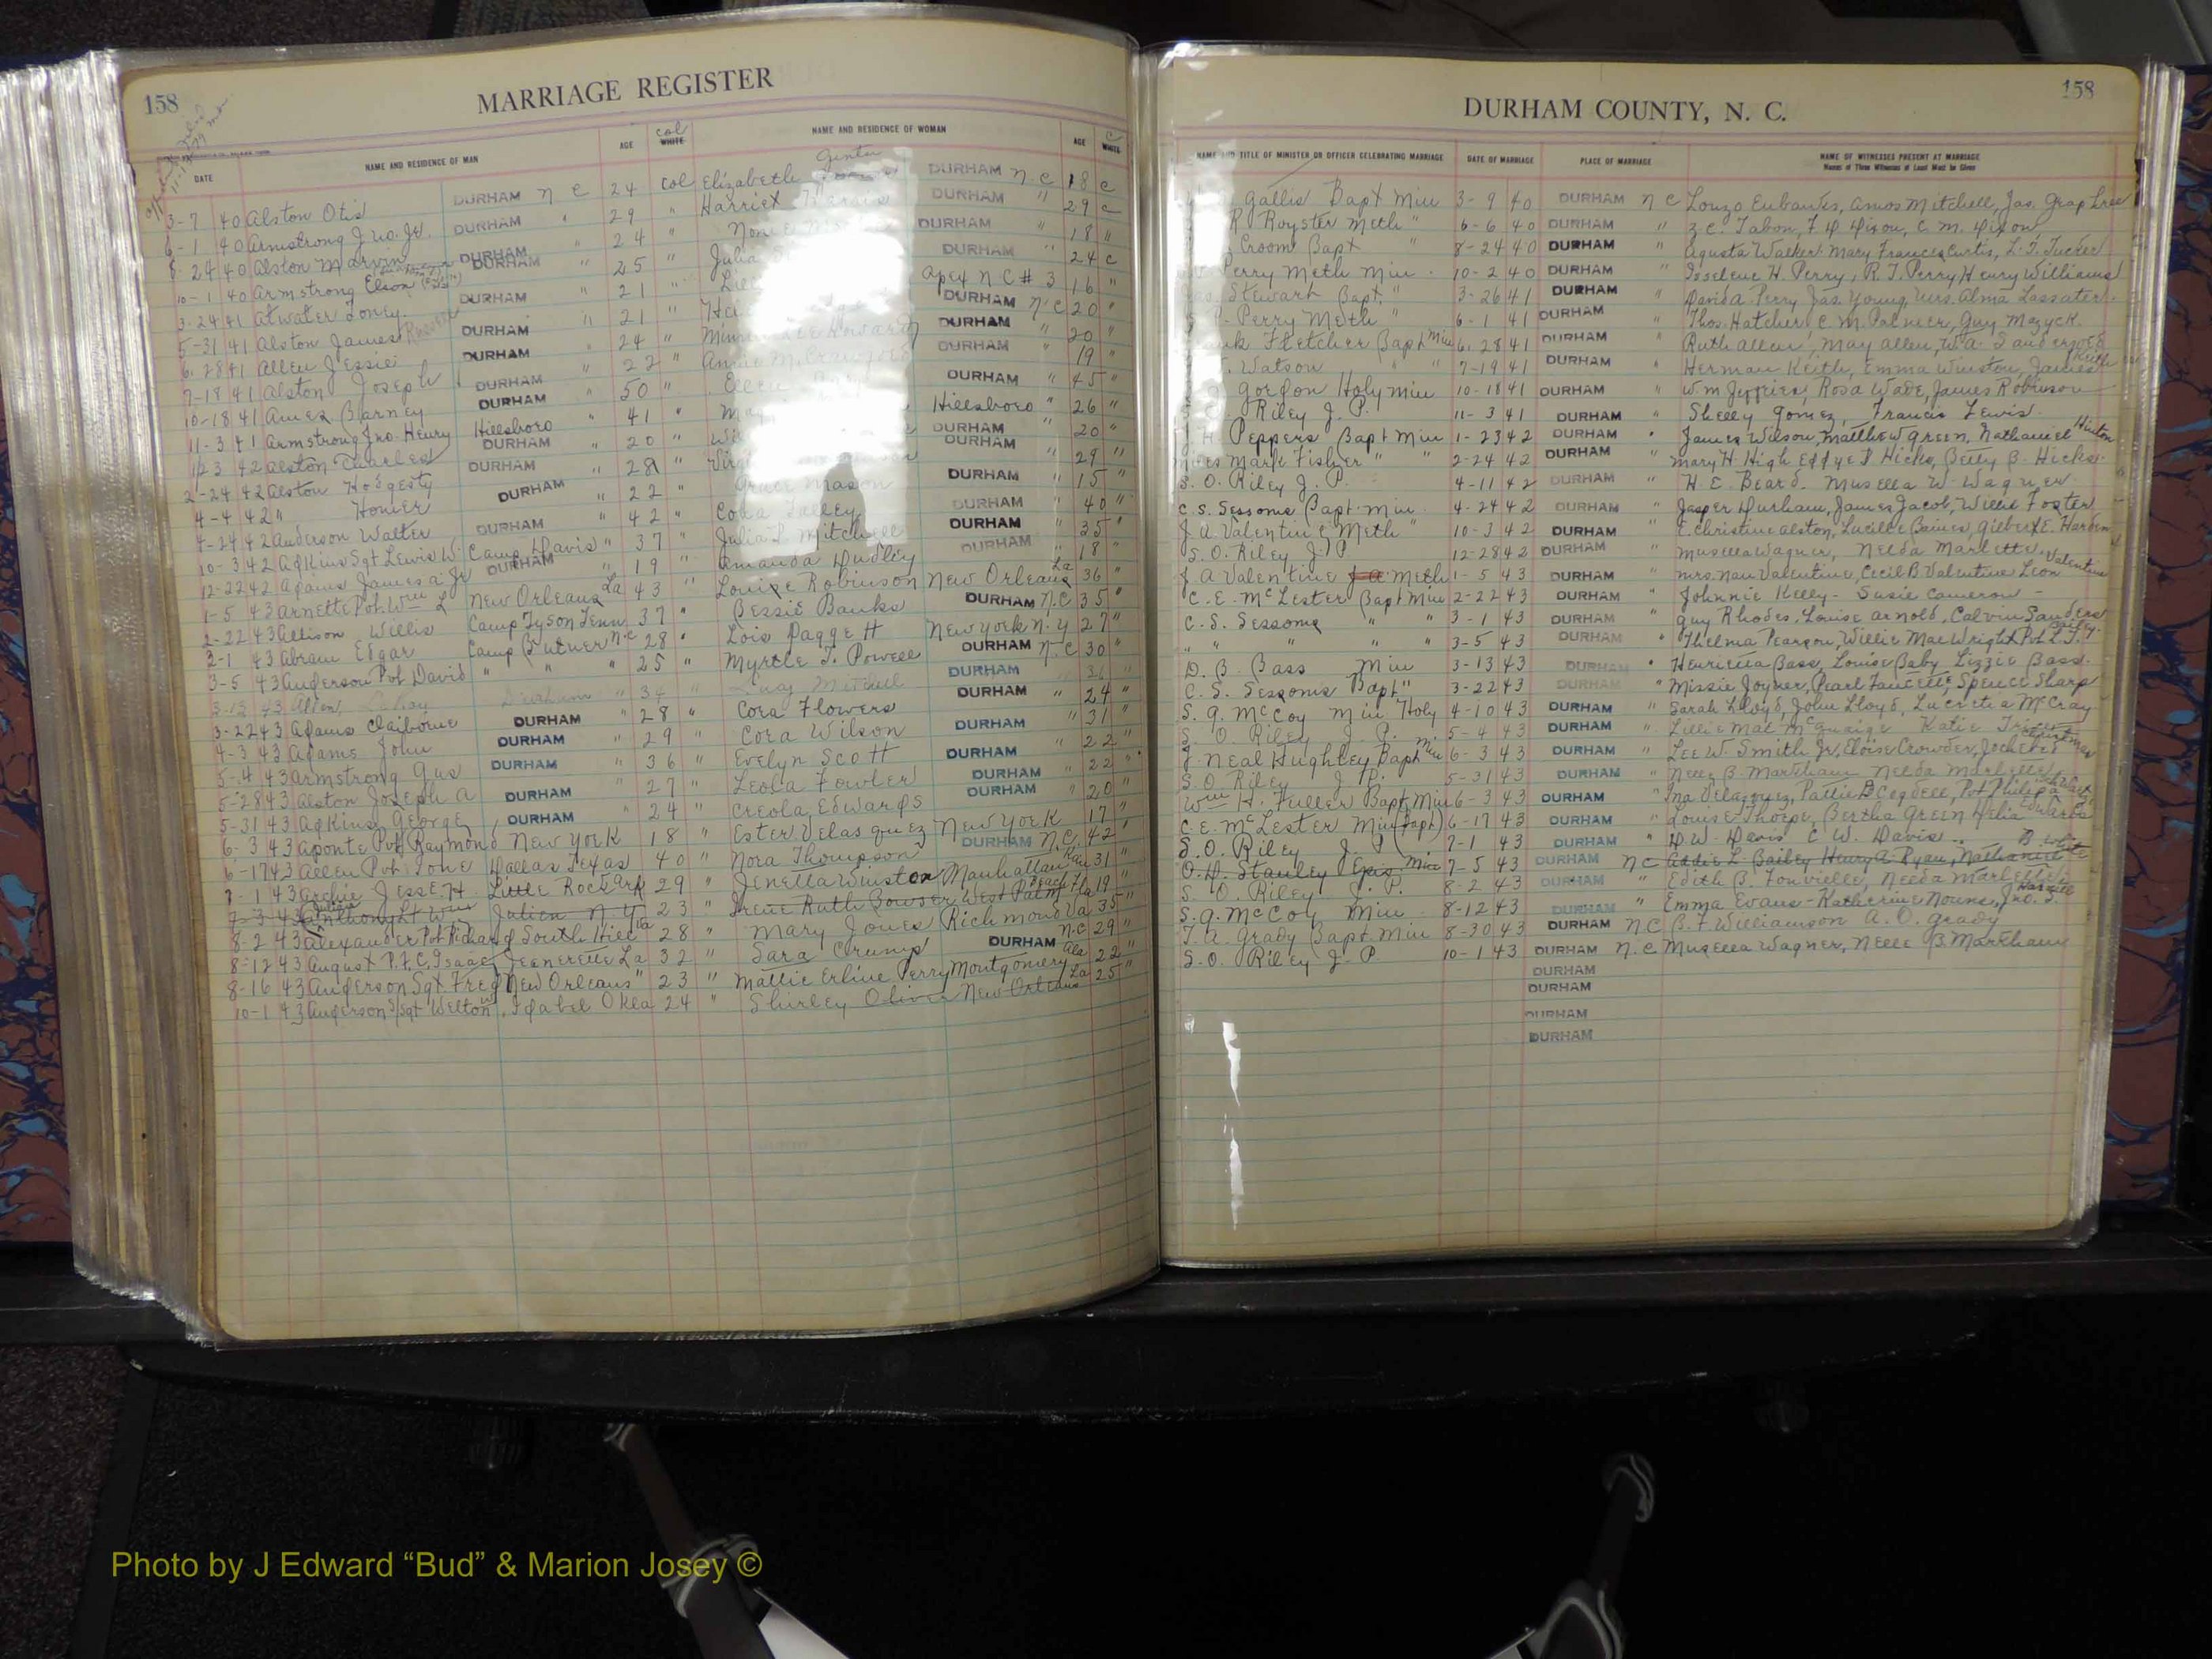 158
MARRIAGE REGISTER
DATE NAME AND RESIDENCE OF MAN AGE col WHITE NAME AND RESIDENCE OF WOMAN AGE c WHITE
3-7 40 Alston Otis DURHAM N C 24 col Elizabeth Genter DURHAM N.C 18 c
6-1 40 Armstrong Jno. Jr. DURHAM " 29 " Harriet DURHAM " 29 c
8-24 40 Alston Marvin DURHAM " 24 " DURHAM " 18 "
10-1 40 Armstrong Elson DURHAM " 25 " Julia DURHAM " 24 c
3-24 41 Atwater Toney DURHAM " 21 " Apex N C # 3 16 "
5-31 41 Alston James DURHAM " 21 " DURHAM N.C 20 "
6-28 41 Allen Jessie DURHAM 24 " Howard DURHAM " 20 "
7-18 41 Alston Joseph DURHAM 22 " Annie M. DURHAM " 19 "
10-18 41 Ames Barney DURHAM 50 " DURHAM " 45 "
11-3 41 Armstrong Jno. Henry Hillsboro " 41 " Hillsboro " 26 "
1-23 42 Alston Charles DURHAM " 20 " DURHAM " 20 "
2-24 42 Alston Hodgesty DURHAM " 28 " DURHAM " 29 "
4-4 42 " Homer DURHAM " 22 " Grace Mason DURHAM " 15 "
4-24 42 Anderson Walter DURHAM " 42 " Cora Talley DURHAM " 40 "
10-3 42 Adkins Sgt Lewis W. Camp Davis " 37 " Julia L. Mitchell DURHAM 35 "
12-22 42 Adams James A Jr DURHAM " 19 " Amanda Dudley DURHAM 18 "
1-5 43 Arnette Pvt. Wm L New Orleans La 43 " Louise Robinson New Orleans La 36 "
2-22 43 Allison Willis Camp Tyson Tenn 37 " Bessie Banks DURHAM N.C 35 "
3-1 43 Abram Edgar Camp Butner N.C 28 " Lois Daggett New York N.Y 27 "
3-5 43 Anderson Pvt David " " " 25 " Myrtle T. Powell DURHAM N.C 30 "
3-13 43 Allen, Durham " 34 " Lucy Mitchell DURHAM " 31 "
3-22 43 Adams Claiborne DURHAM " 28 " Cora Flowers DURHAM " 24 "
4-3 43 Adams John DURHAM " 29 " Cora Wilson DURHAM " 31 "
5-4 43 Armstrong Gus DURHAM " 36 " Evelyn Scott DURHAM " 22 "
5-28 43 Alston Joseph A DURHAM " 27 " Leola Fowler DURHAM " 22 "
5-31 43 Adkins George DURHAM " 24 " Creola Edwards DURHAM " 20 "
6-3 43 Aponte Pvt Raymond New York 18 " Ester Velasquez New York 17 "
6-17 43 Allen Pvt. Ione Dallas Texas 40 " Nora Thompson DURHAM N.C. 42 "
7-1 43 Archie Jesse H. Little Rock Ark 29 " Jenella Winston Manhattan Kan 31 "
7-3 43 Anthony Lt Wm Julien N.Y 23 " Irene Ruth Bowser West Palm Beach Fla 19 "
8-2 43 Alexander Pvt Richard South Hill Va 28 " Mary Jones Richmond Va 35 "
8-12 43 August P.F.C. Isaac Jeanerette La 32 " Sara Crump DURHAM N.C 29 "
8-16 43 Anderson Sgt Fred New Orleans " 23 " Mattie Erline Perry Montgomery Ala 22 "
10-1 43 Anderson S/Sgt Welton Idabel Okla 24 " Shirley Oliver New Orleans La 25 "
158
DURHAM COUNTY, N. C.
NAME AND TITLE OF MINISTER OR OFFICER CELEBRATING MARRIAGE DATE OF MARRIAGE PLACE OF MARRIAGE NAME OF WITNESSES PRESENT AT MARRIAGE
Names of Three Witnesses at Least Must be Given
Gallis Bapt Min 3-9 40 DURHAM N C Lonzo Eubanks, Amos Mitchell, Jas.
R Royster Meth " 6-6 40 DURHAM " Z.C. Tabon, F D Dixon, C. M. Dixon
Croom Bapt " 8-24 40 DURHAM " Agusta Walker Mary Frances Curtis, L. T. Tucker
Perry Meth Min 10-2 40 DURHAM " Isselene H. Perry, R. T. Perry Henry Williams
Stewart Bapt. " 3-26 41 DURHAM " Davida Perry Jas. Young, Mrs. Alma Lassater
Perry Meth " 6-1 41 DURHAM " Thos. Hatcher C. M. Palmer, Guy Mazyck
Fletcher Bapt Min 6-28 41 DURHAM " Ruth Allen, May Allen, W.A. Saunders
Watson " " 7-19 41 DURHAM " Herman Keith, Emma Winston, James Keith
Gordon Holy Min 10-18 41 DURHAM " Wm Jeffries, Rosa Wade, James Robinson
Riley J. P. 11-3 41 DURHAM " Shelly Gomez, Francis Lewis
J. H. Peppers Bapt Min 1-23 42 DURHAM " James Wilson, Matthew Green, Nathaniel Hinton
Miles Mark Fisher " " 2-24 42 DURHAM " Mary H. High Eddye P Hicks, Betty B. Hicks
S. O. Riley J. P. 4-11 42 DURHAM " H. E. Beard. Musella W. Wagner
C. S. Sessoms Bapt. Min 4-24 42 DURHAM " Jasper Durham, James Jacob, Willie Foster
J. A. Valentine Meth " 10-3 42 DURHAM " E. Christine Alston, Lucille Baines, Gilbert E. Harden
S. O. Riley J. P 12-28 42 DURHAM " Musella Wagner, Nelda Marlette
J. A Valentine J A Meth 1-5 43 DURHAM " Mrs. Nan Valentine, Cecil B Valentine Leon Valentine
C. E. McLester Bapt Min 2-22 43 DURHAM " Johnnie Kelly - Susie Cameron -
C. S. Sessoms " " 3-1 43 DURHAM " Guy Rhodes, Louise Arnold, Calvin Sanders
" " " " 3-5 43 DURHAM " Thelma Pearson, Willie Mae Wright Pvt L.T. Bailey
D. B. Bass Min 3-13 43 DURHAM " Henrietta Bass, Louise Baby Lizzie Bass
C. S. Sessoms Bapt " 3-22 43 DURHAM " Missie Joyner, Pearl Faucette, Spence Sharp
S. G. McCoy Min Holy 4-10 43 DURHAM " Sarah Lloyd, John Lloyd, Lucretia McCray
S. O. Riley J. P. 5-4 43 DURHAM " Lillie Mae Katie
J. Neal Hughley Bapt Min 6-3 43 DURHAM " Lee W. Smith Jr, Eloise Crowder,
S. O Riley J. P. 5-31 43 DURHAM " Nelle B. Markham Nelda Marlette
Wm H. Fuller Bapt Min 6-3 43 DURHAM " Ina Velasquez, Pattie B Cogdell, Pvt Philip
C. E. McLester Min (Bapt) 6-17 43 DURHAM " Louise Thorpe, Bertha Green Helia Edwards
S. O. Riley J. P 7-1 43 DURHAM " D. W. Davis C. W. Davis
O. H. Stanley Epis. Min 7-5 43 DURHAM N C Addie L. Bailey Henry A. Ryan, Nathaniel B. White
S. O. Riley J. P. 8-2 43 DURHAM " Edith B. Fonvielle, Nelda Marlette
S. G. McCoy Min 8-12 43 DURHAM " Emma Evans - Katherine Nouns, Jno. S.
T. A. Grady Bapt Min 8-30 43 DURHAM N C B. F. Williamson A. O. Grady
S. O. Riley J. P 10-1 43 DURHAM N. C Musella Wagner, Nelle B. Markham
DURHAM
DURHAM
DURHAM
DURHAM
Photo by J Edward “Bud” & Marion Josey ©